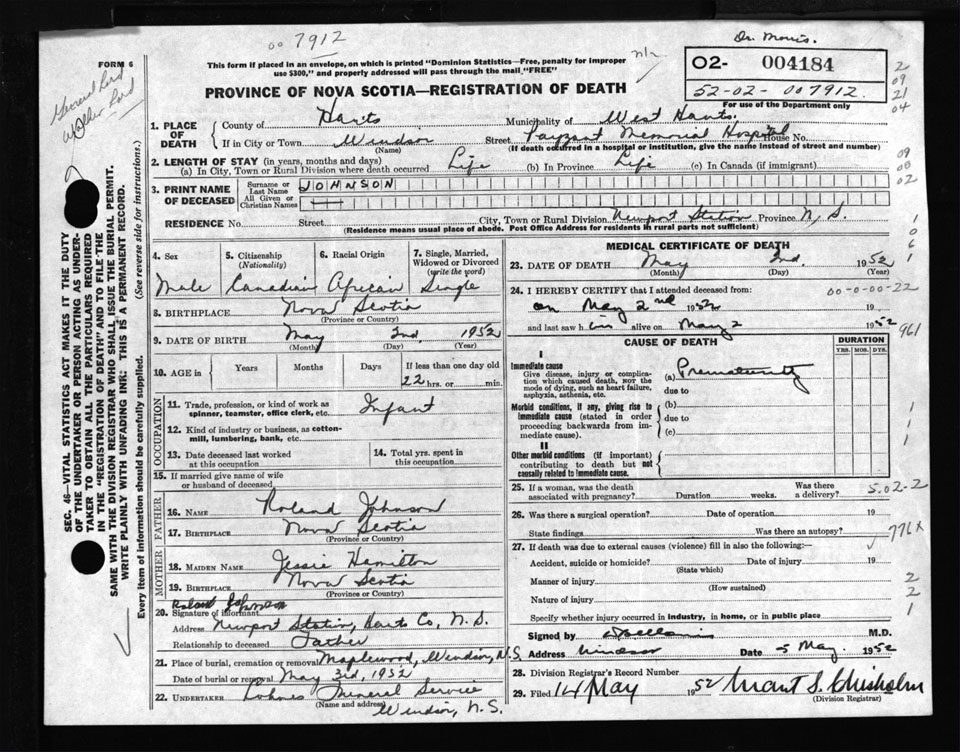 00 7912
Dr. Morris.
FORM 6
This form if placed in an envelope, on which is printed "Dominion Statistics—Free, penalty for improper
use $300," and properly addressed will pass through the mail "FREE"
PROVINCE OF NOVA SCOTIA—REGISTRATION OF DEATH
O2- 004184
52-02-007912.
For use of the Department only
2
09
21
04
1. PLACE OF DEATH
County of Hants
Municipality of West Hants.
If in City or Town Windsor
(Name)
Street Payzant Memorial Hospital House No.
(If death occurred in a hospital or institution, give the name instead of street and number)
2. LENGTH OF STAY (in years, months and days)
(a) In City, Town or Rural Division where death occurred Life (b) In Province Life (c) In Canada (if immigrant)
09
00
02
3. PRINT NAME OF DECEASED
Surname or Last Name JOHNSON
All Given or Christian Names
RESIDENCE No. Street City, Town or Rural Division Newport Station Province N. S.
(Residence means usual place of abode. Post Office Address for residents in rural parts not sufficient)
4. Sex
Male
5. Citizenship
(Nationality)
Canadian
6. Racial Origin
African
7. Single, Married,
Widowed or Divorced
(write the word)
Single
8. BIRTHPLACE Nova Scotia
(Province or Country)
9. DATE OF BIRTH May 2nd, 1952
(Month) (Day) (Year)
10. AGE in
Years
Months
Days
If less than one day old
22 hrs. or min.
OCCUPATION
11. Trade, profession, or kind of work as
spinner, teamster, office clerk, etc. Infant
12. Kind of industry or business, as cotton-
mill, lumbering, bank, etc.
13. Date deceased last worked
at this occupation
14. Total yrs. spent in
this occupation
15. If married give name of wife
or husband of deceased
FATHER
16. NAME Roland Johnson
17. BIRTHPLACE Nova Scotia
(Province or Country)
MOTHER
18. MAIDEN NAME Jessie Hamilton
19. BIRTHPLACE Nova Scotia
(Province or Country)
Roland Johnson
20. Signature of informant
Address Newport Station, Hants Co, N. S.
Relationship to deceased Father
21. Place of burial, cremation or removal Maplewood, Windsor, N.S.
Date of burial or removal May 3rd, 1952
22. UNDERTAKER Lohnes Funeral Service
(Name and address)
Windsor, N. S.
MEDICAL CERTIFICATE OF DEATH
23. DATE OF DEATH May 2nd. 1952
(Month) (Day) (Year)
24. I HEREBY CERTIFY that I attended deceased from:
00-0-00-22
on May 2nd 1952 19
and last saw him alive on May 2 1952
961
CAUSE OF DEATH
DURATION
YRS. MOS. DYS.
I
Immediate cause
Give disease, injury or complica-
tion which caused death, NOT the
mode of dying, such as heart failure,
asphyxia, asthenia, etc.
(a) Prematurity
due to
Morbid conditions, if any, giving rise to
immediate cause (stated in order
proceeding backwards from im-
mediate cause).
(b)
due to
(c)
II
Other morbid conditions (if important)
contributing to death but not
causally related to immediate cause.
25. If a woman, was the death
associated with pregnancy? Duration weeks. Was there
a delivery?
5.02-2
26. Was there a surgical operation? Date of operation 19
State findings Was there an autopsy?
776X
27. If death was due to external causes (violence) fill in also the following:—
Accident, suicide or homicide? Date of injury 19
(State which)
Manner of injury
(How sustained)
Nature of injury
Specify whether injury occurred in industry, in home, or in public place
Signed by M.D.
Address Windsor Date 5 May. 1952
28. Division Registrar's Record Number
29. Filed 14 May 1952 Grant S. Chisholm
(Division Registrar)
SEC. 46—VITAL STATISTICS ACT MAKES IT THE DUTY
OF THE UNDERTAKER OR PERSON ACTING AS UNDER-
TAKER TO OBTAIN ALL THE PARTICULARS REQUIRED
IN THE "REGISTRATION OF DEATH" AND TO FILE THE
SAME WITH THE DIVISION REGISTRAR WHO SHALL ISSUE THE BURIAL PERMIT.
WRITE PLAINLY WITH UNFADING INK: THIS IS A PERMANENT RECORD.
Every item of information should be carefully supplied. (See reverse side for instructions.)